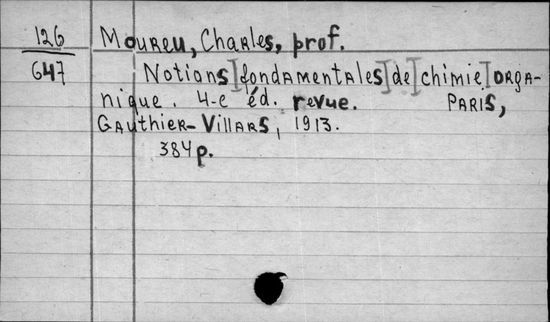 126
647
Moureu, Charles, prof.
Notions]fondamentales]de]chimie]orga-
nique. 4-e éd. revue. Paris,
Gauthier-Villars, 1913.
384 p.